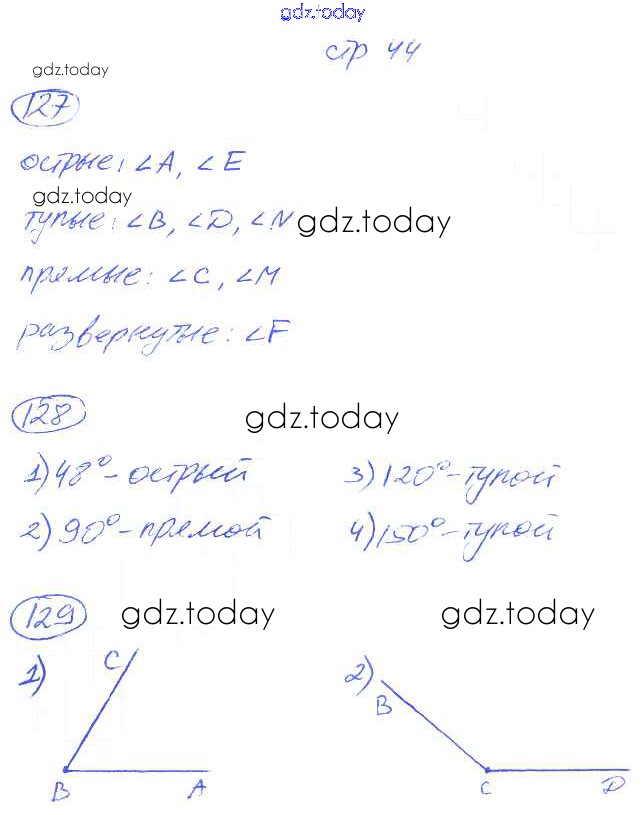 gdz.today
стр 44
gdz.today
127
острые: ∠A, ∠E
gdz.today
тупые: ∠B, ∠D, ∠N gdz.today
прямые: ∠C, ∠M
развернутые: ∠F
128 gdz.today
1) 48° - острый 3) 120° - тупой
2) 90° - прямой 4) 150° - тупой
129 gdz.today gdz.today
1) C 2) B
B A C D